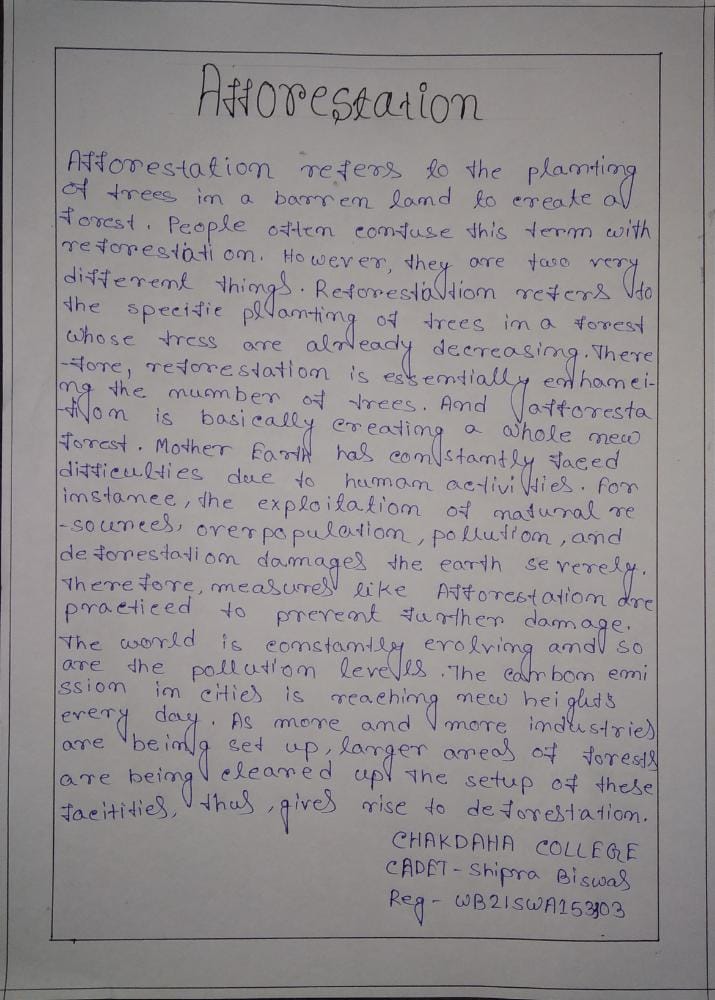 Afforestation
Afforestation refers to the planting
of trees in a barren land to create a
forest. People often confuse this term with
reforestation. However, they are two very
different things. Reforestation refers to
the specific planting of trees in a forest
whose tress are already decreasing. There
-fore, reforestation is essentially enhanci-
ng the number of trees. And afforesta
-tion is basically creating a whole new
forest. Mother Earth has constantly faced
difficulties due to human activities. For
instance, the exploitation of natural re
-sources, overpopulation, pollution, and
deforestation damages the earth severely.
Therefore, measures like Afforestation are
practiced to prevent further damage.
The world is constantly evolving and so
are the pollution levels. The carbon emi
ssion in cities is reaching new heights
every day. As more and more industries
are being set up, larger areas of forests
are being cleared up. The setup of these
facitities, thus, gives rise to deforestation.
CHAKDAHA COLLEGE
CADET - Shipra Biswas
Reg - WB21SWA153103